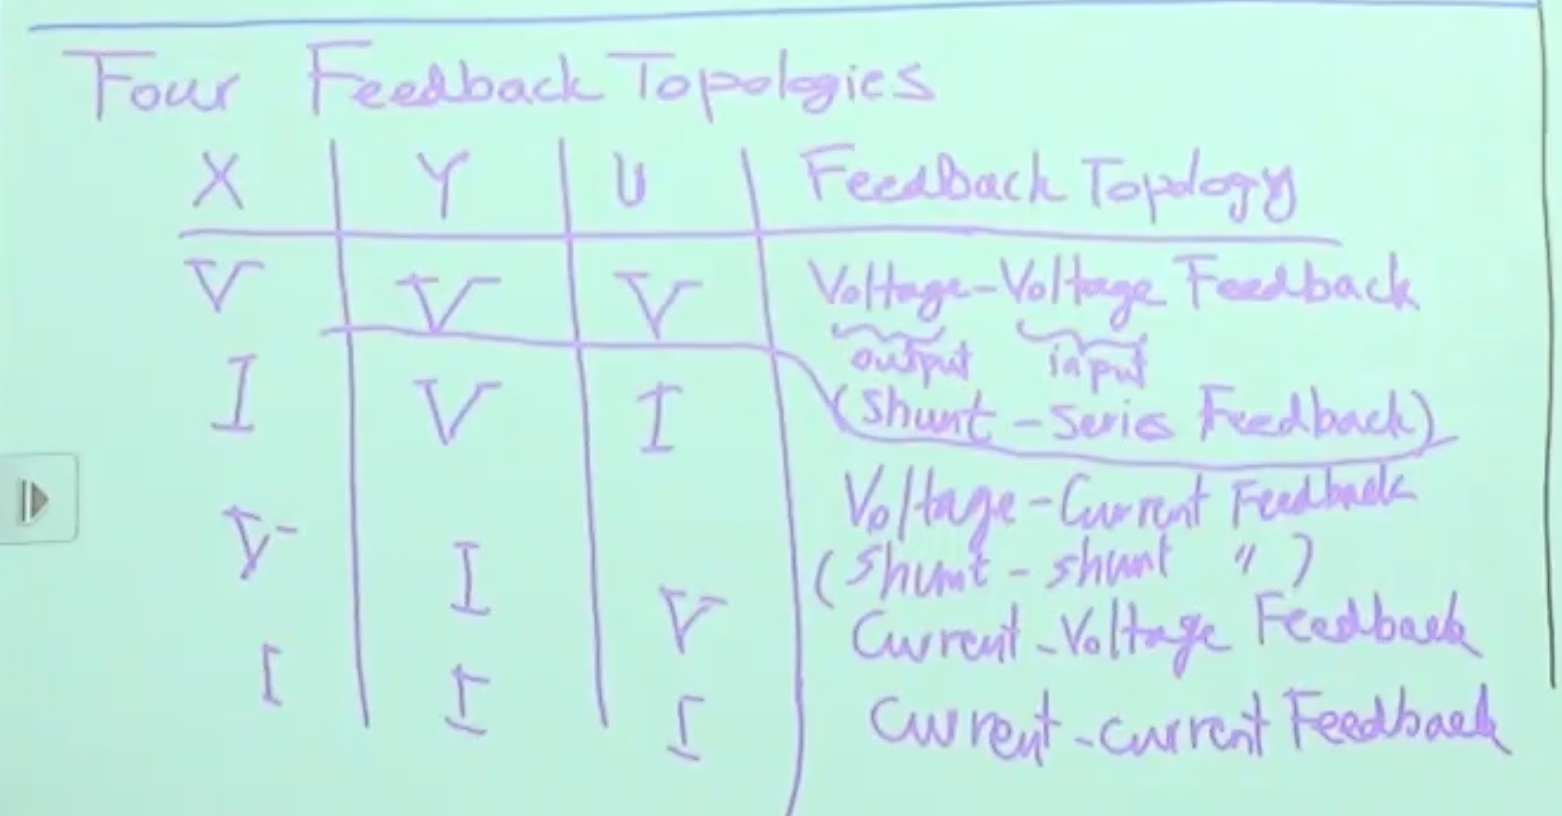 Four Feedback Topologies
X Y U Feedback Topology
V V V Voltage-Voltage Feedback
output input
I V I (Shunt - Series Feedback)
Voltage-Current Feedback
V I (Shunt - shunt " )
V Current-Voltage Feedback
I I I Current-current Feedback